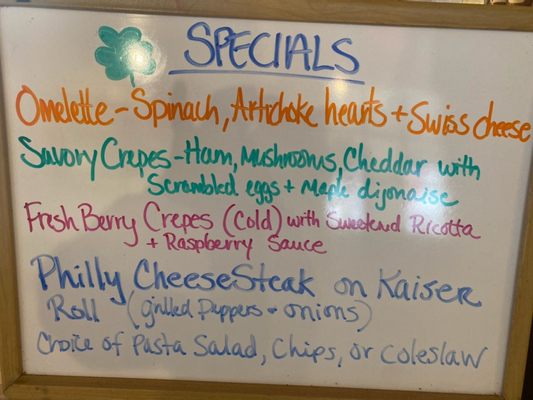 SPECIALS
Omelette - Spinach, Artichoke hearts + Swiss cheese
Savory Crepes - Ham, Mushrooms, Cheddar with
Scrambled eggs + Maple dijonaise
Fresh Berry Crepes (Cold) with Sweetend Ricotta
+ Raspberry Sauce
Philly CheeseSteak on Kaiser
Roll (grilled Peppers + onions)
Choice of Pasta Salad, Chips, or Coleslaw